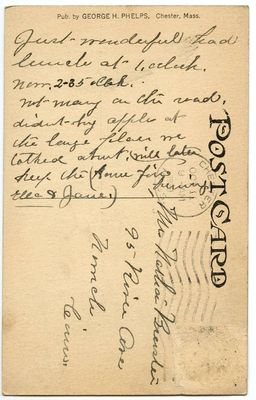 Pub. by GEORGE H. PHELPS, Chester, Mass.
Just wonderful had
lunch at 1, o'clock,
now, 2-35 o'clock.
not many on the road.
didn't buy apples at
the large place we
talked about, will later
keep the home fire
burning
&
POST CARD
CHESTER
Mrs Nathan
95 River Ave
Norwich
Conn.